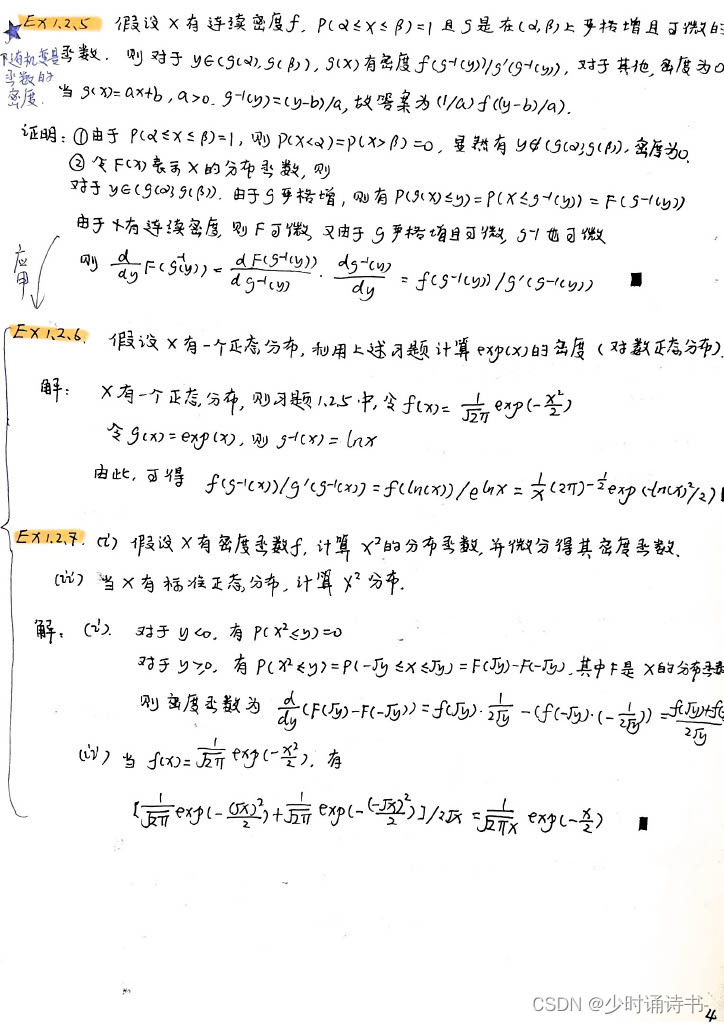 EX1.2.5 假设X有连续密度f, P(α≤X≤β)=1 且g是在(α,β)上严格增且可微的
函数. 则对于y∈(g(α),g(β)), g(X)有密度f(g⁻¹(y))/g'(g⁻¹(y)), 对于其他, 密度为0
随机变量
函数的
密度.
当g(x)=ax+b, a>0. g⁻¹(y)=(y-b)/a, 故答案为(1/a)f((y-b)/a).
证明: ①由于P(α≤X≤β)=1, 则P(X<α)=P(X>β)=0, 显然有y∉(g(α),g(β)), 密度为0.
② 令F(x)表示X的分布函数, 则
对于y∈(g(α),g(β)). 由于g严格增, 则有P(g(X)≤y)=P(X≤g⁻¹(y))=F(g⁻¹(y))
由于X有连续密度, 则F可微, 又由于g严格增且可微, g⁻¹也可微
则 d/dy F(g⁻¹(y)) = dF(g⁻¹(y))/dg⁻¹(y) · dg⁻¹(y)/dy = f(g⁻¹(y))/g'(g⁻¹(y)) ■
应用
EX1.2.6. 假设X有一个正态分布, 利用上述习题计算exp(X)的密度(对数正态分布).
解: X有一个正态分布, 则习题1.2.5中, 令f(x)= 1/√2π exp(-x²/2)
令g(x)=exp(x), 则g⁻¹(x)=lnx
由此, 可得 f(g⁻¹(x))/g'(g⁻¹(x))=f(ln(x))/e^lnx = 1/x (2π)^-1/2 exp(-ln(x)²/2) ■
EX1.2.7. (i) 假设X有密度函数f, 计算X²的分布函数, 并微分得其密度函数.
(ii) 当X有标准正态分布, 计算X²分布.
解: (i). 对于y<0, 有P(X²≤y)=0
对于y≥0, 有P(X²≤y)=P(-√y≤X≤√y)=F(√y)-F(-√y), 其中F是X的分布函数
则密度函数为 d/dy (F(√y)-F(-√y))=f(√y)· 1/2√y -(f(-√y)·(-1/2√y)) = f(√y)+f(/2√y
(ii) 当f(x)= 1/√2π exp(-x²/2), 有
[1/√2π exp(-(√x)²/2)+ 1/√2π exp(-(-√x)²/2)]/2√x = 1/√2πx exp(-x/2) ■
CSDN @少时诵诗书-
4